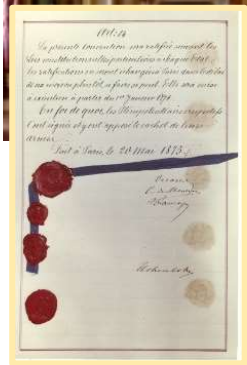 Art. 14
La présente Convention sera ratifiée suivant les
lois constitutionnelles particulières à chaque Etat;
les ratifications en seront échangées à Paris dans le délai
de six mois ou plus tôt, si faire se peut. Elle sera mise
à exécution à partir du 1er Janvier 1876.
En foi de quoi, les Plénipotentiaires respectifs
l'ont signée et y ont apposé le cachet de leurs
armes.
Fait à Paris, le 20 Mai 1875.
Hohenlohe